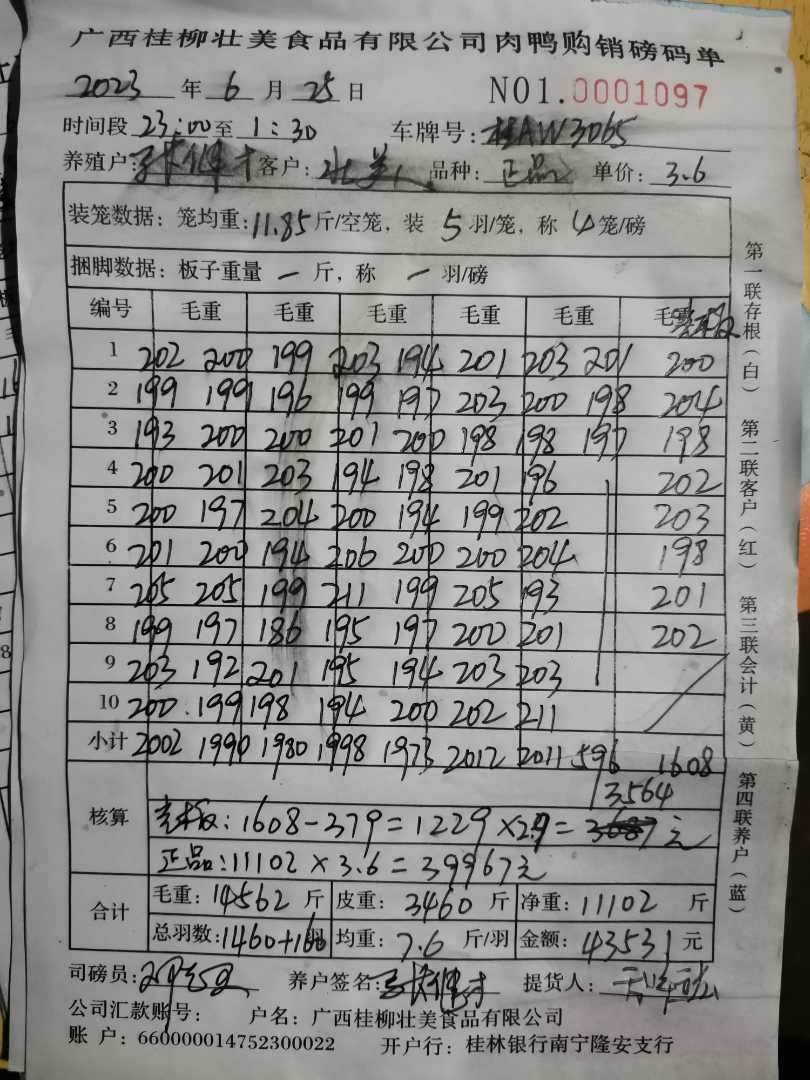 广西桂柳壮美食品有限公司肉鸭购销磅码单
2023 年 6 月 25 日 NO1.0001097
时间段 23:00 至 1:30 车牌号: 桂AW3065
养殖户: 客户: 壮美 品种: 正品 单价: 3.6
装笼数据: 笼均重: 11.85 斤/空笼, 装 5 羽/笼, 称 4 笼/磅
捆脚数据: 板子重量 一 斤, 称 一 羽/磅
编号 毛重 毛重 毛重 毛重 毛重
1 202 200 199 203 194 201 203 201 200
2 199 199 196 199 197 203 200 198 204
3 193 200 200 201 200 198 198 197 198
4 200 201 203 194 198 201 196 202
5 200 197 204 200 194 199 202 203
6 201 200 194 206 200 200 204 198
7 205 205 199 211 199 205 193 201
8 199 197 186 195 197 200 201 202
9 203 192 201 195 194 203 203
10 200 199 198 194 200 202 211
小计 2002 1990 1980 1998 1973 2012 2011 596 1608
3564
核算 : 1608-379=1229×2.9= 元
正品: 11102×3.6=39967元
合计 毛重: 14562 斤 皮重: 3460 斤 净重: 11102 斤
总羽数: 1460+160 羽 均重: 7.6 斤/羽 金额: 43531 元
司磅员: 养户签名: 提货人:
公司汇款账号: 户名: 广西桂柳壮美食品有限公司
账 户: 660000014752300022 开户行: 桂林银行南宁隆安支行
第一联存根(白) 第二联客户(红) 第三联会计(黄) 第四联养户(蓝)